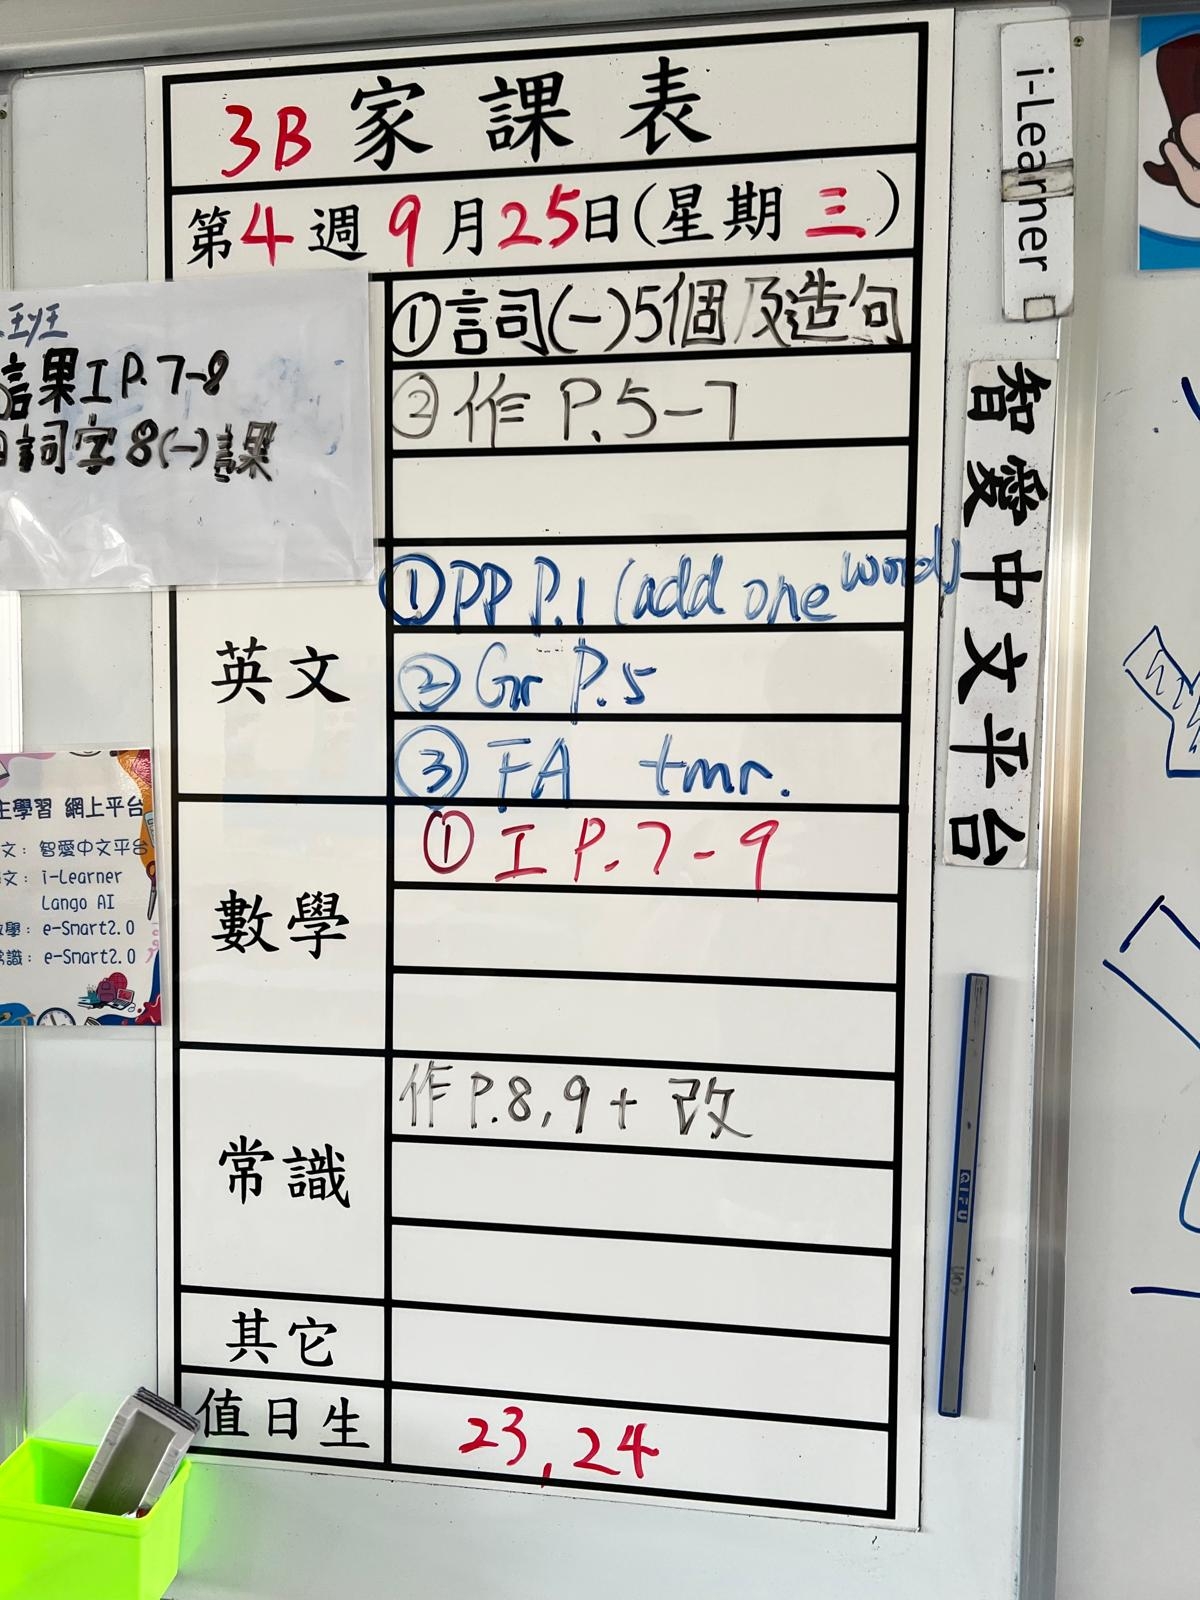 3B 家課表
第4週9月25日(星期三)
①言司(一)5個及造句
②作 P.5-7
英文
①PP P.1 (add one word)
②Gr P.5
③FA tmr.
數學
①工 P.7-9
常識
作 P.8,9+改
其它
值日生
23,24
班
課工P.7-8
詞字8(一)課
主學習 網上平台
文：智愛中文平台
文：i-Learner
Lango AI
數學：e-Smart2.0
常識：e-Smart2.0
i-Learner
智愛中文平台
QIFU